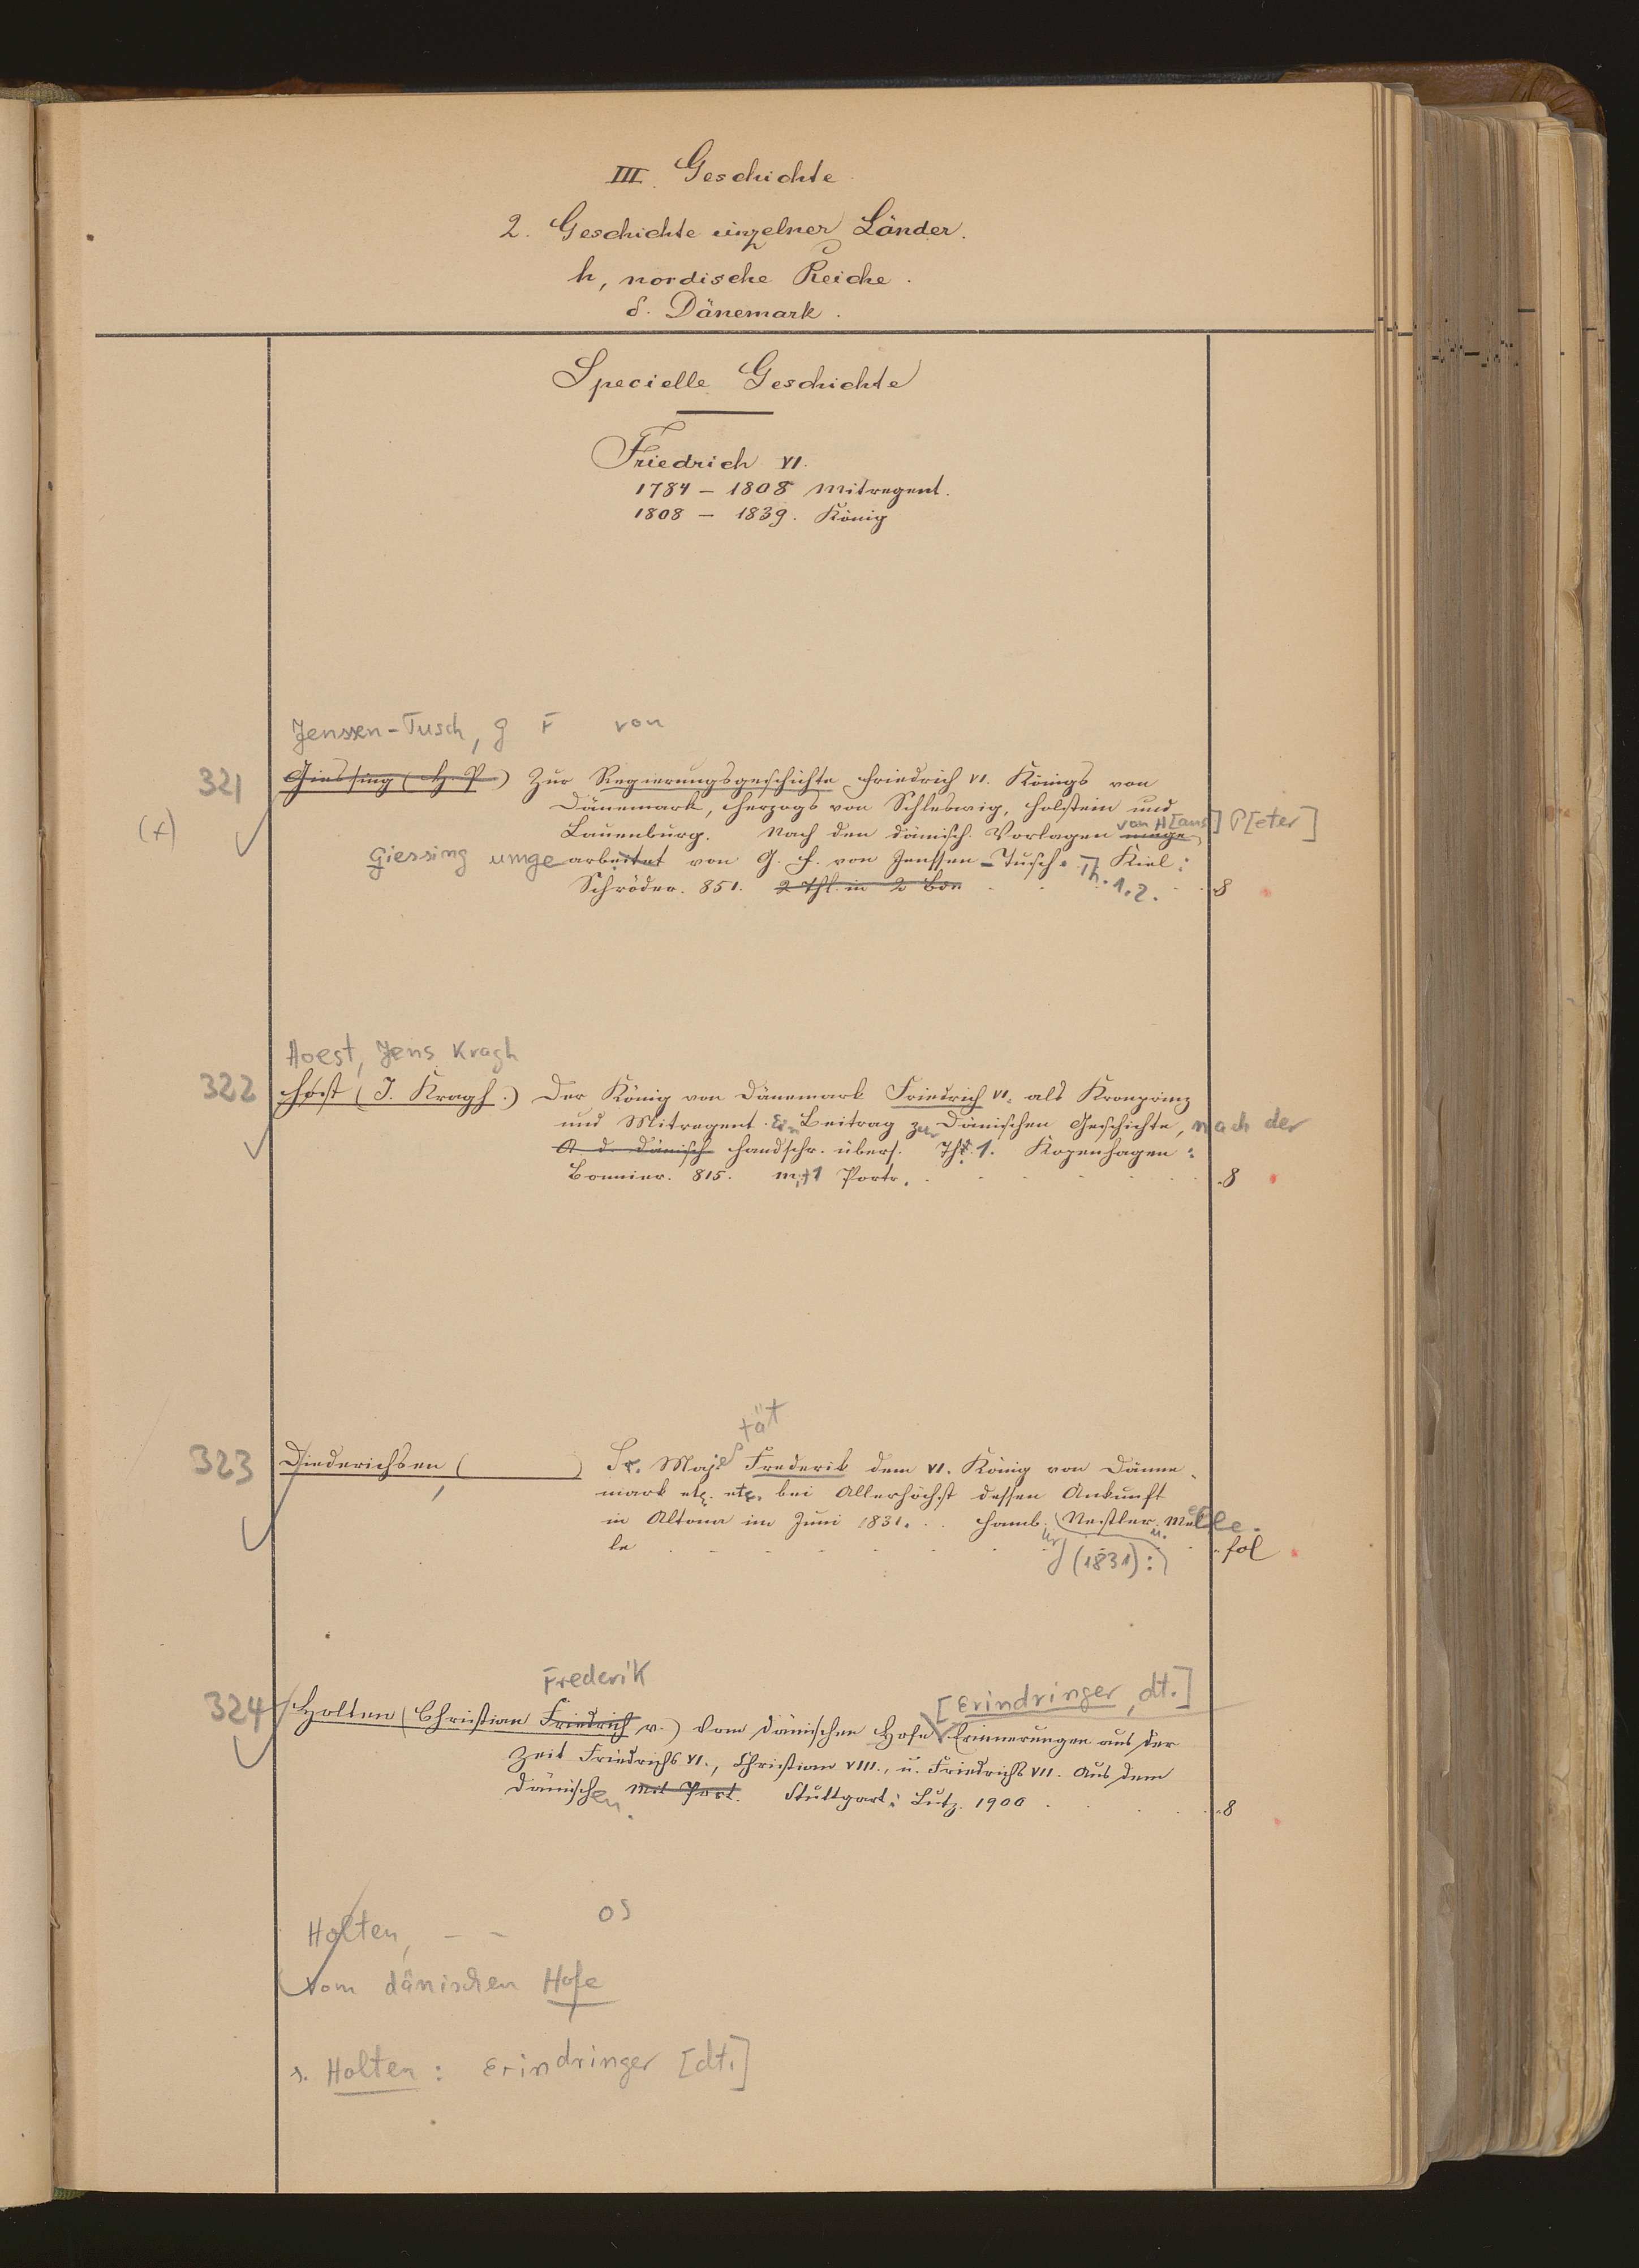 III. Geschichte
2. Geschichte einzelner Länder.
h, nordische Reiche.
δ. Dänemark.
Specielle Geschichte
Friedrich VI.
1784 – 1808 Mitregent.
1808 – 1839. König
Jenssen-Tusch, G F von
321 Giessing (H. P.) Zur Regierungsgeschichte Friedrich VI. Königs von
Dänemark, Herzogs von Schleswig, Holstein und
(x) Lauenburg. Nach den dänisch. Vorlagen umge- von H[ans] P[eter]
Giessing umgearbeitet von G. F. von Jenssen-Tusch. Th. 1.2. Kiel:
Schröder. 851. 2 Thl. in 2 Bdn 8
Hoest, Jens Kragh
322 Høst (J. Kragh.) Der König von Dänemark Friedrich VI. als Kronprinz
und Mitregent. Ein Beitrag zur Dänischen Geschichte, nach der
A. d. Dänisch Handschr. übers. Th. 1. Kopenhagen:
Bonnier. 815. mit 1 Portr. 8
323 Diederichsen, ( ) Sr. Majestät Frederik dem VI. König von Däne-
mark etc. etc. bei Allerhöchst dessen Ankunft
in Altona im Juni 1831. Hamb. Nestler u. Melle.
le (1831): fol
Frederik
[Erindringer, dt.]
324 Holten (Christian Friedrich v.) Vom dänischen Hofe Erinnerungen aus der
Zeit Friedrichs VI., Christian VIII., u. Friedrichs VII. Aus dem
Dänischen. Mit Port. Stuttgart: Lutz. 1900 8
Holten, – – os
Vom dänischen Hofe
s. Holten: Erindringer [dt.]